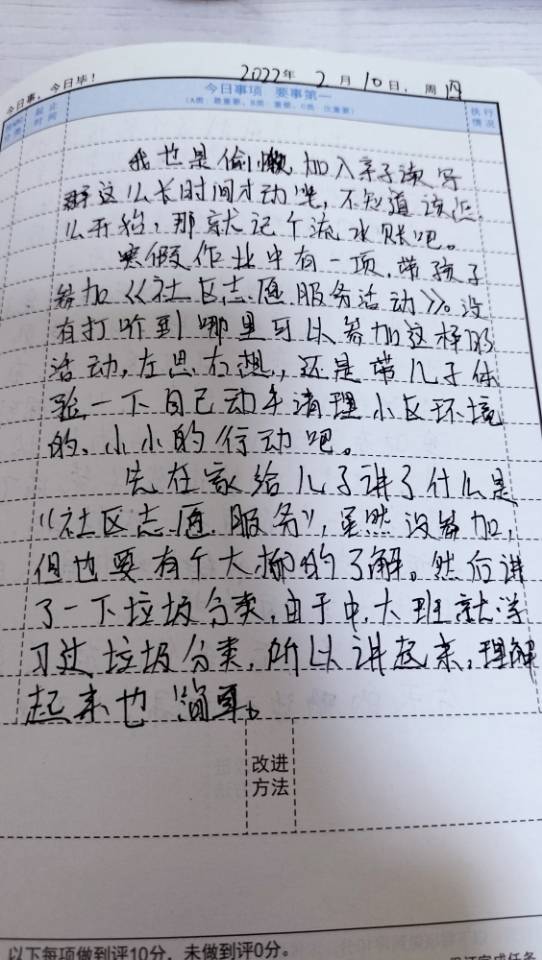 今日事，今日毕！
2022年 2月10日，周四
今日事项 要事第一
执行
情况
我也是偷懒，加入亲子读写
群这么长时间才动笔，不知道该怎
么开始，那就记个流水账吧。
寒假作业中有一项，带孩子
参加《社区志愿服务活动》。没
有打听到哪里可以参加这样的
活动，左思右想，还是带儿子体
验一下自己动手清理小区环境
的、小小的行动吧。
先在家给儿子讲了什么是
“社区志愿服务”，虽然没参加，
但也要有个大概的了解。然后讲
了一下垃圾分类，由于中、大班就学
习过垃圾分类，所以讲起来，理解
起来也简单。
改进
方法
以下每项做到评10分，未做到评0分。